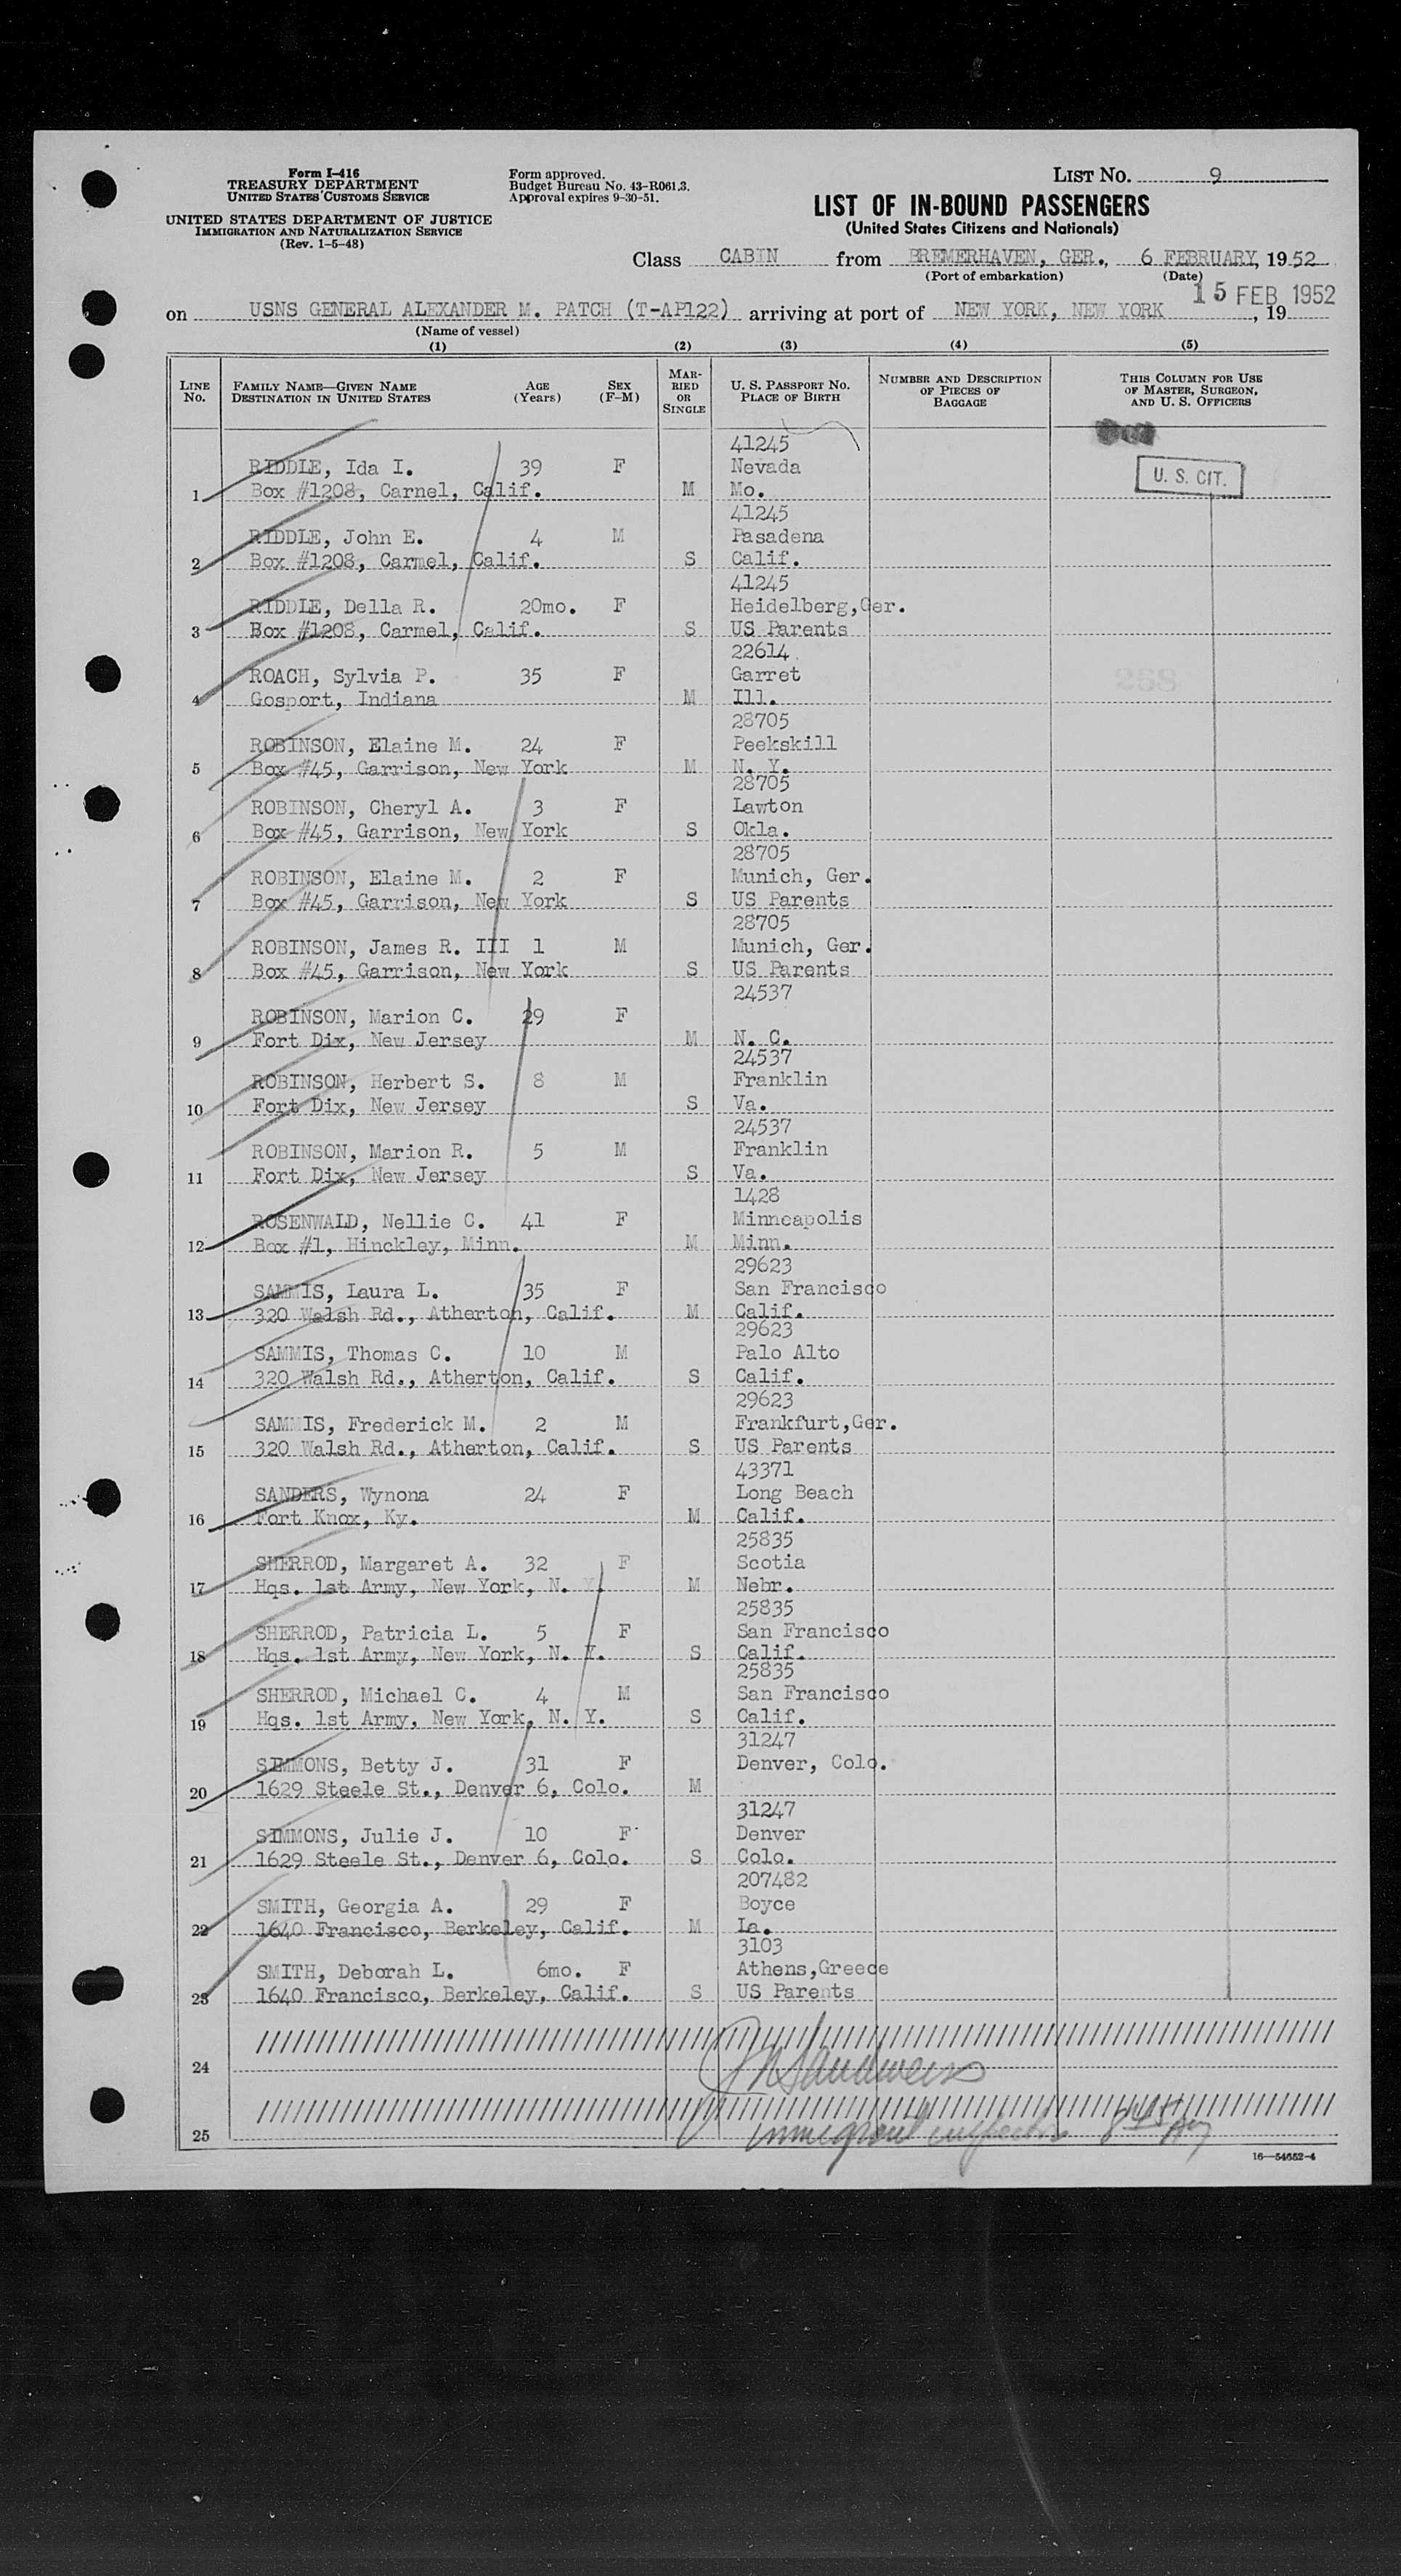 Form I-416
TREASURY DEPARTMENT
UNITED STATES CUSTOMS SERVICE
UNITED STATES DEPARTMENT OF JUSTICE
IMMIGRATION AND NATURALIZATION SERVICE
(Rev. 1-5-48)
Form approved.
Budget Bureau No. 43-R061.3.
Approval expires 9-30-51.
LIST NO. 9
LIST OF IN-BOUND PASSENGERS
(United States Citizens and Nationals)
Class CABIN from BREMERHAVEN, GER., 6 FEBRUARY, 1952
(Port of embarkation) (Date)
15 FEB 1952
on USNS GENERAL ALEXANDER M. PATCH (T-AP122) arriving at port of NEW YORK, NEW YORK, 19
(Name of vessel)
(1) (2) (3) (4) (5)
LINE NO. FAMILY NAME—GIVEN NAME DESTINATION IN UNITED STATES AGE (Years) SEX (F-M) MARRIED OR SINGLE U. S. PASSPORT NO. PLACE OF BIRTH NUMBER AND DESCRIPTION OF PIECES OF BAGGAGE THIS COLUMN FOR USE OF MASTER, SURGEON, AND U. S. OFFICERS
41245
RIDDLE, Ida I. 39 F Nevada
1 Box #1208, Carnel, Calif. M Mo.
U. S. CIT.
41245
RIDDLE, John E. 4 M Pasadena
2 Box #1208, Carmel, Calif. S Calif.
41245
RIDDLE, Della R. 20mo. F Heidelberg,Ger.
3 Box #1208, Carmel, Calif. S US Parents
22614
ROACH, Sylvia P. 35 F Garret
268
4 Gosport, Indiana M Ill.
28705
ROBINSON, Elaine M. 24 F Peekskill
5 Box #45, Garrison, New York M N. Y.
28705
ROBINSON, Cheryl A. 3 F Lawton
6 Box #45, Garrison, New York S Okla.
28705
ROBINSON, Elaine M. 2 F Munich, Ger.
7 Box #45, Garrison, New York S US Parents
28705
ROBINSON, James R. III 1 M Munich, Ger.
8 Box #45, Garrison, New York S US Parents
24537
ROBINSON, Marion C. 29 F
9 Fort Dix, New Jersey M N. C.
24537
ROBINSON, Herbert S. 8 M Franklin
10 Fort Dix, New Jersey S Va.
24537
ROBINSON, Marion R. 5 M Franklin
11 Fort Dix, New Jersey S Va.
1428
ROSENWALD, Nellie C. 41 F Minneapolis
12 Box #1, Hinckley, Minn. M Minn.
29623
SAMMIS, Laura L. 35 F San Francisco
13 320 Walsh Rd., Atherton, Calif. M Calif.
29623
SAMMIS, Thomas C. 10 M Palo Alto
14 320 Walsh Rd., Atherton, Calif. S Calif.
29623
SAMMIS, Frederick M. 2 M Frankfurt,Ger.
15 320 Walsh Rd., Atherton, Calif. S US Parents
43371
SANDERS, Wynona 24 F Long Beach
16 Fort Knox, Ky. M Calif.
25835
SHERROD, Margaret A. 32 F Scotia
17 Hqs. 1st Army, New York, N. Y. M Nebr.
25835
SHERROD, Patricia L. 5 F San Francisco
18 Hqs. 1st Army, New York, N. Y. S Calif.
25835
SHERROD, Michael C. 4 M San Francisco
19 Hqs. 1st Army, New York, N. Y. S Calif.
31247
SIMMONS, Betty J. 31 F Denver, Colo.
20 1629 Steele St., Denver 6, Colo. M
31247
SIMMONS, Julie J. 10 F Denver
21 1629 Steele St., Denver 6, Colo. S Colo.
207482
SMITH, Georgia A. 29 F Boyce
22 1640 Francisco, Berkeley, Calif. M La.
3103
SMITH, Deborah L. 6mo. F Athens,Greece
23 1640 Francisco, Berkeley, Calif. S US Parents
24
25 Immigrant Inspector
16—54652-4